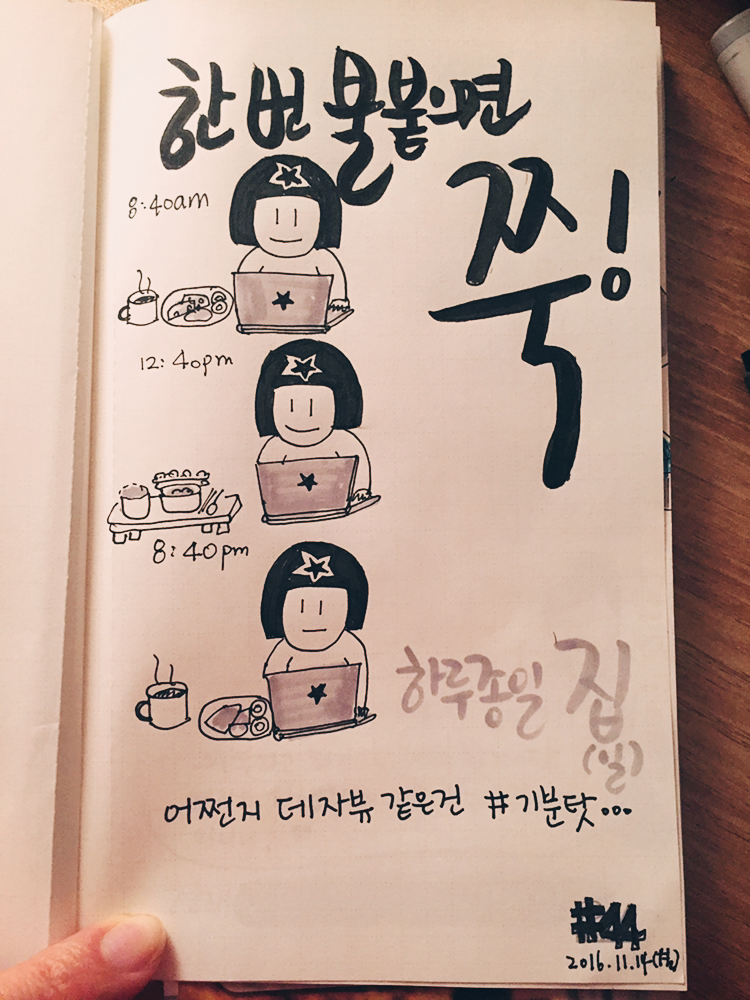 한번 불붙으면
쭉!
8:40am
12:40pm
8:40pm
하루종일 집
(일)
어쩐지 데자뷰 같은건 #기분탓...
#44
2016.11.14(월)